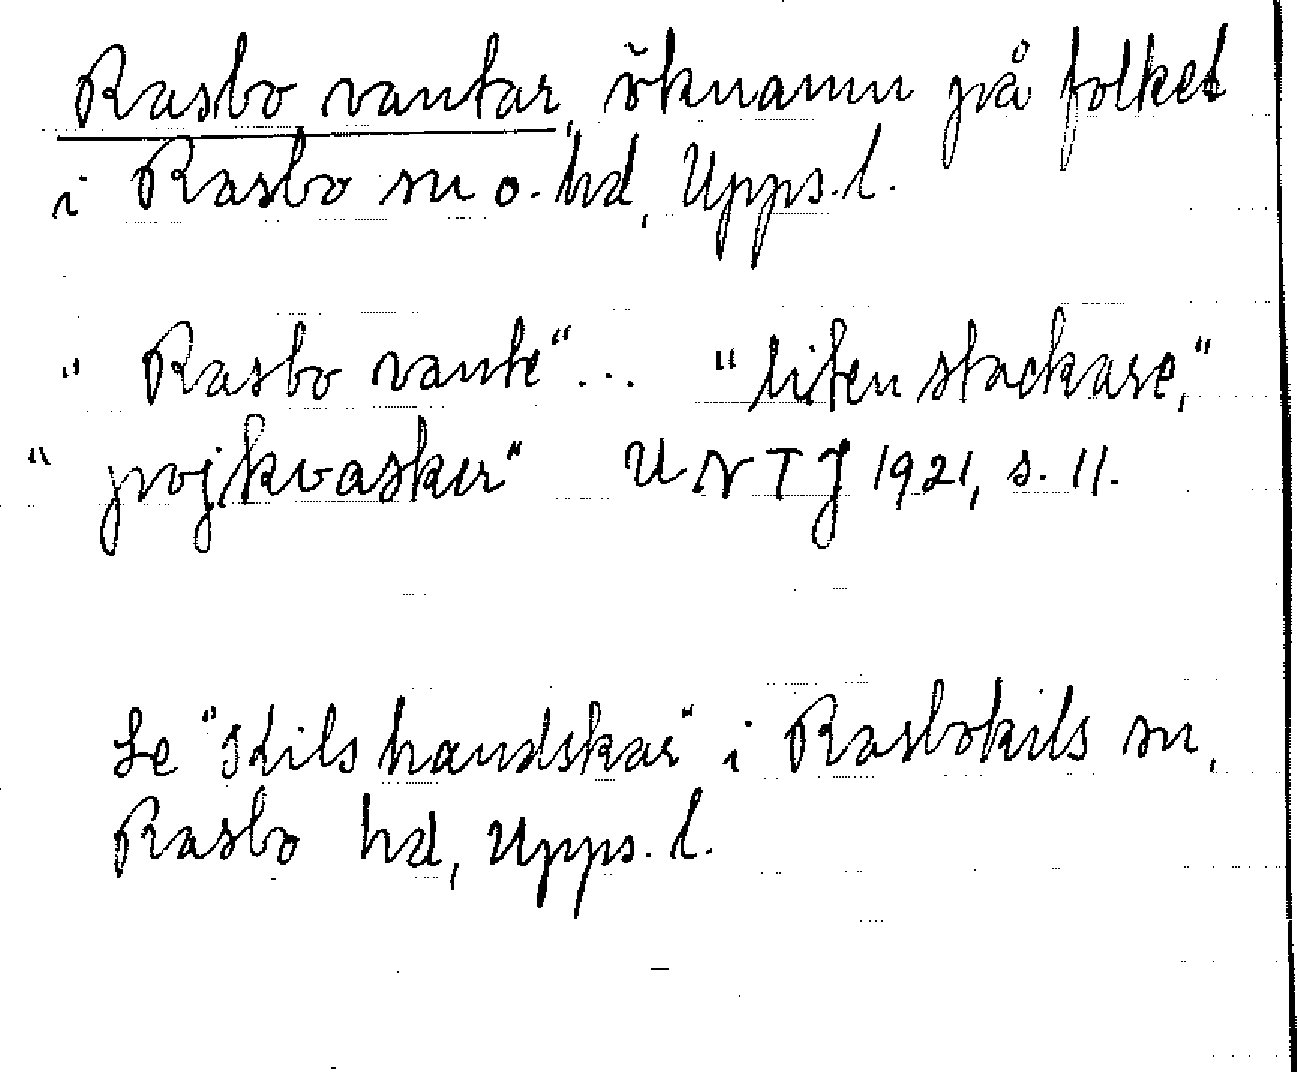 Rasbo vantar, öknamn på folket
i Rasbo sn o. hd, Upps. l.
"Rasbo vante"... "liten stackare,"
"pojkvasker" UNTJ 1921, s. 11.
Se "Kils handskar" i Rasbokils sn,
Rasbo hd, Upps. l.